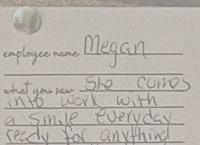 employee name Megan
what you saw She comes
into work with
a smile everyday
ready for anything